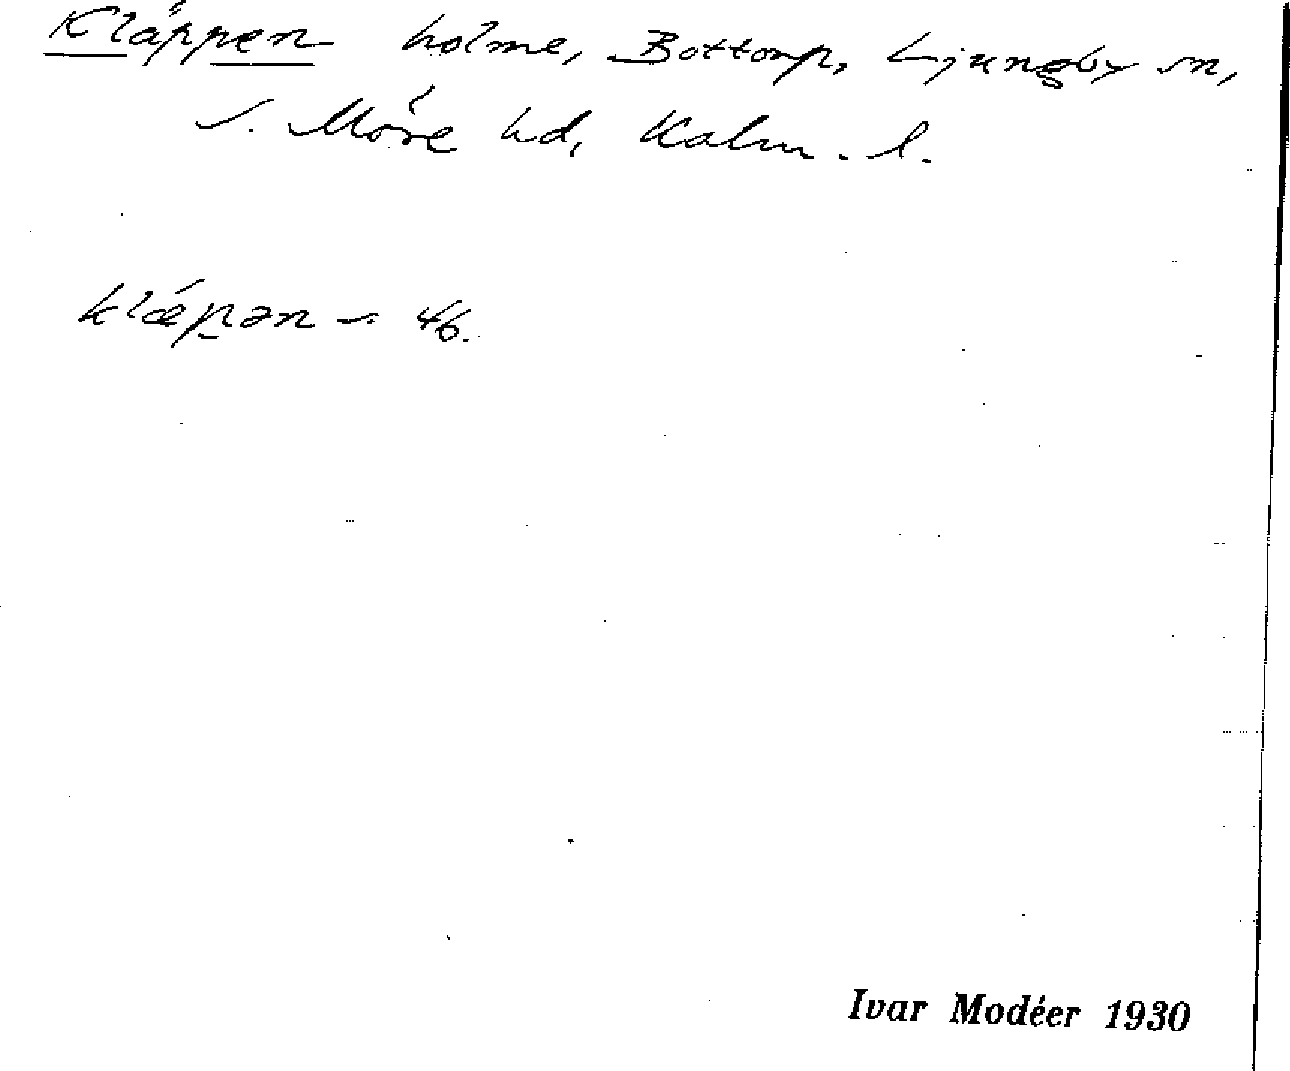 Kläppen holme, Bottorp, Ljungby sn,
S. Möre hd, Kalm. l.
klæpən 46.
Ivar Modéer 1930